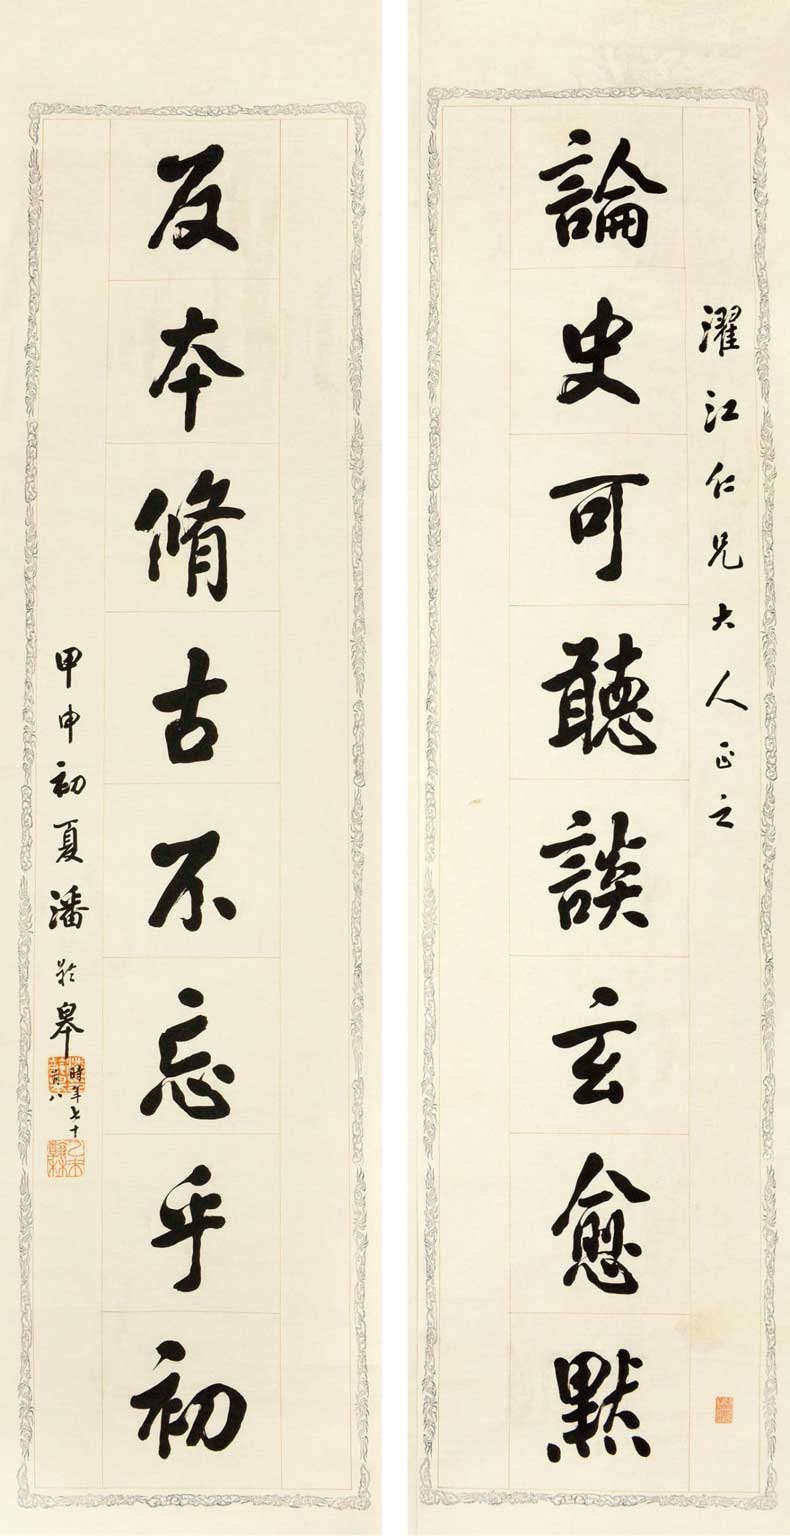 濯江仁兄大人正之
論史可聽談玄愈默
反本脩古不忘乎初
甲申初夏潘齡皋
時年七十
有八
乙未翰林